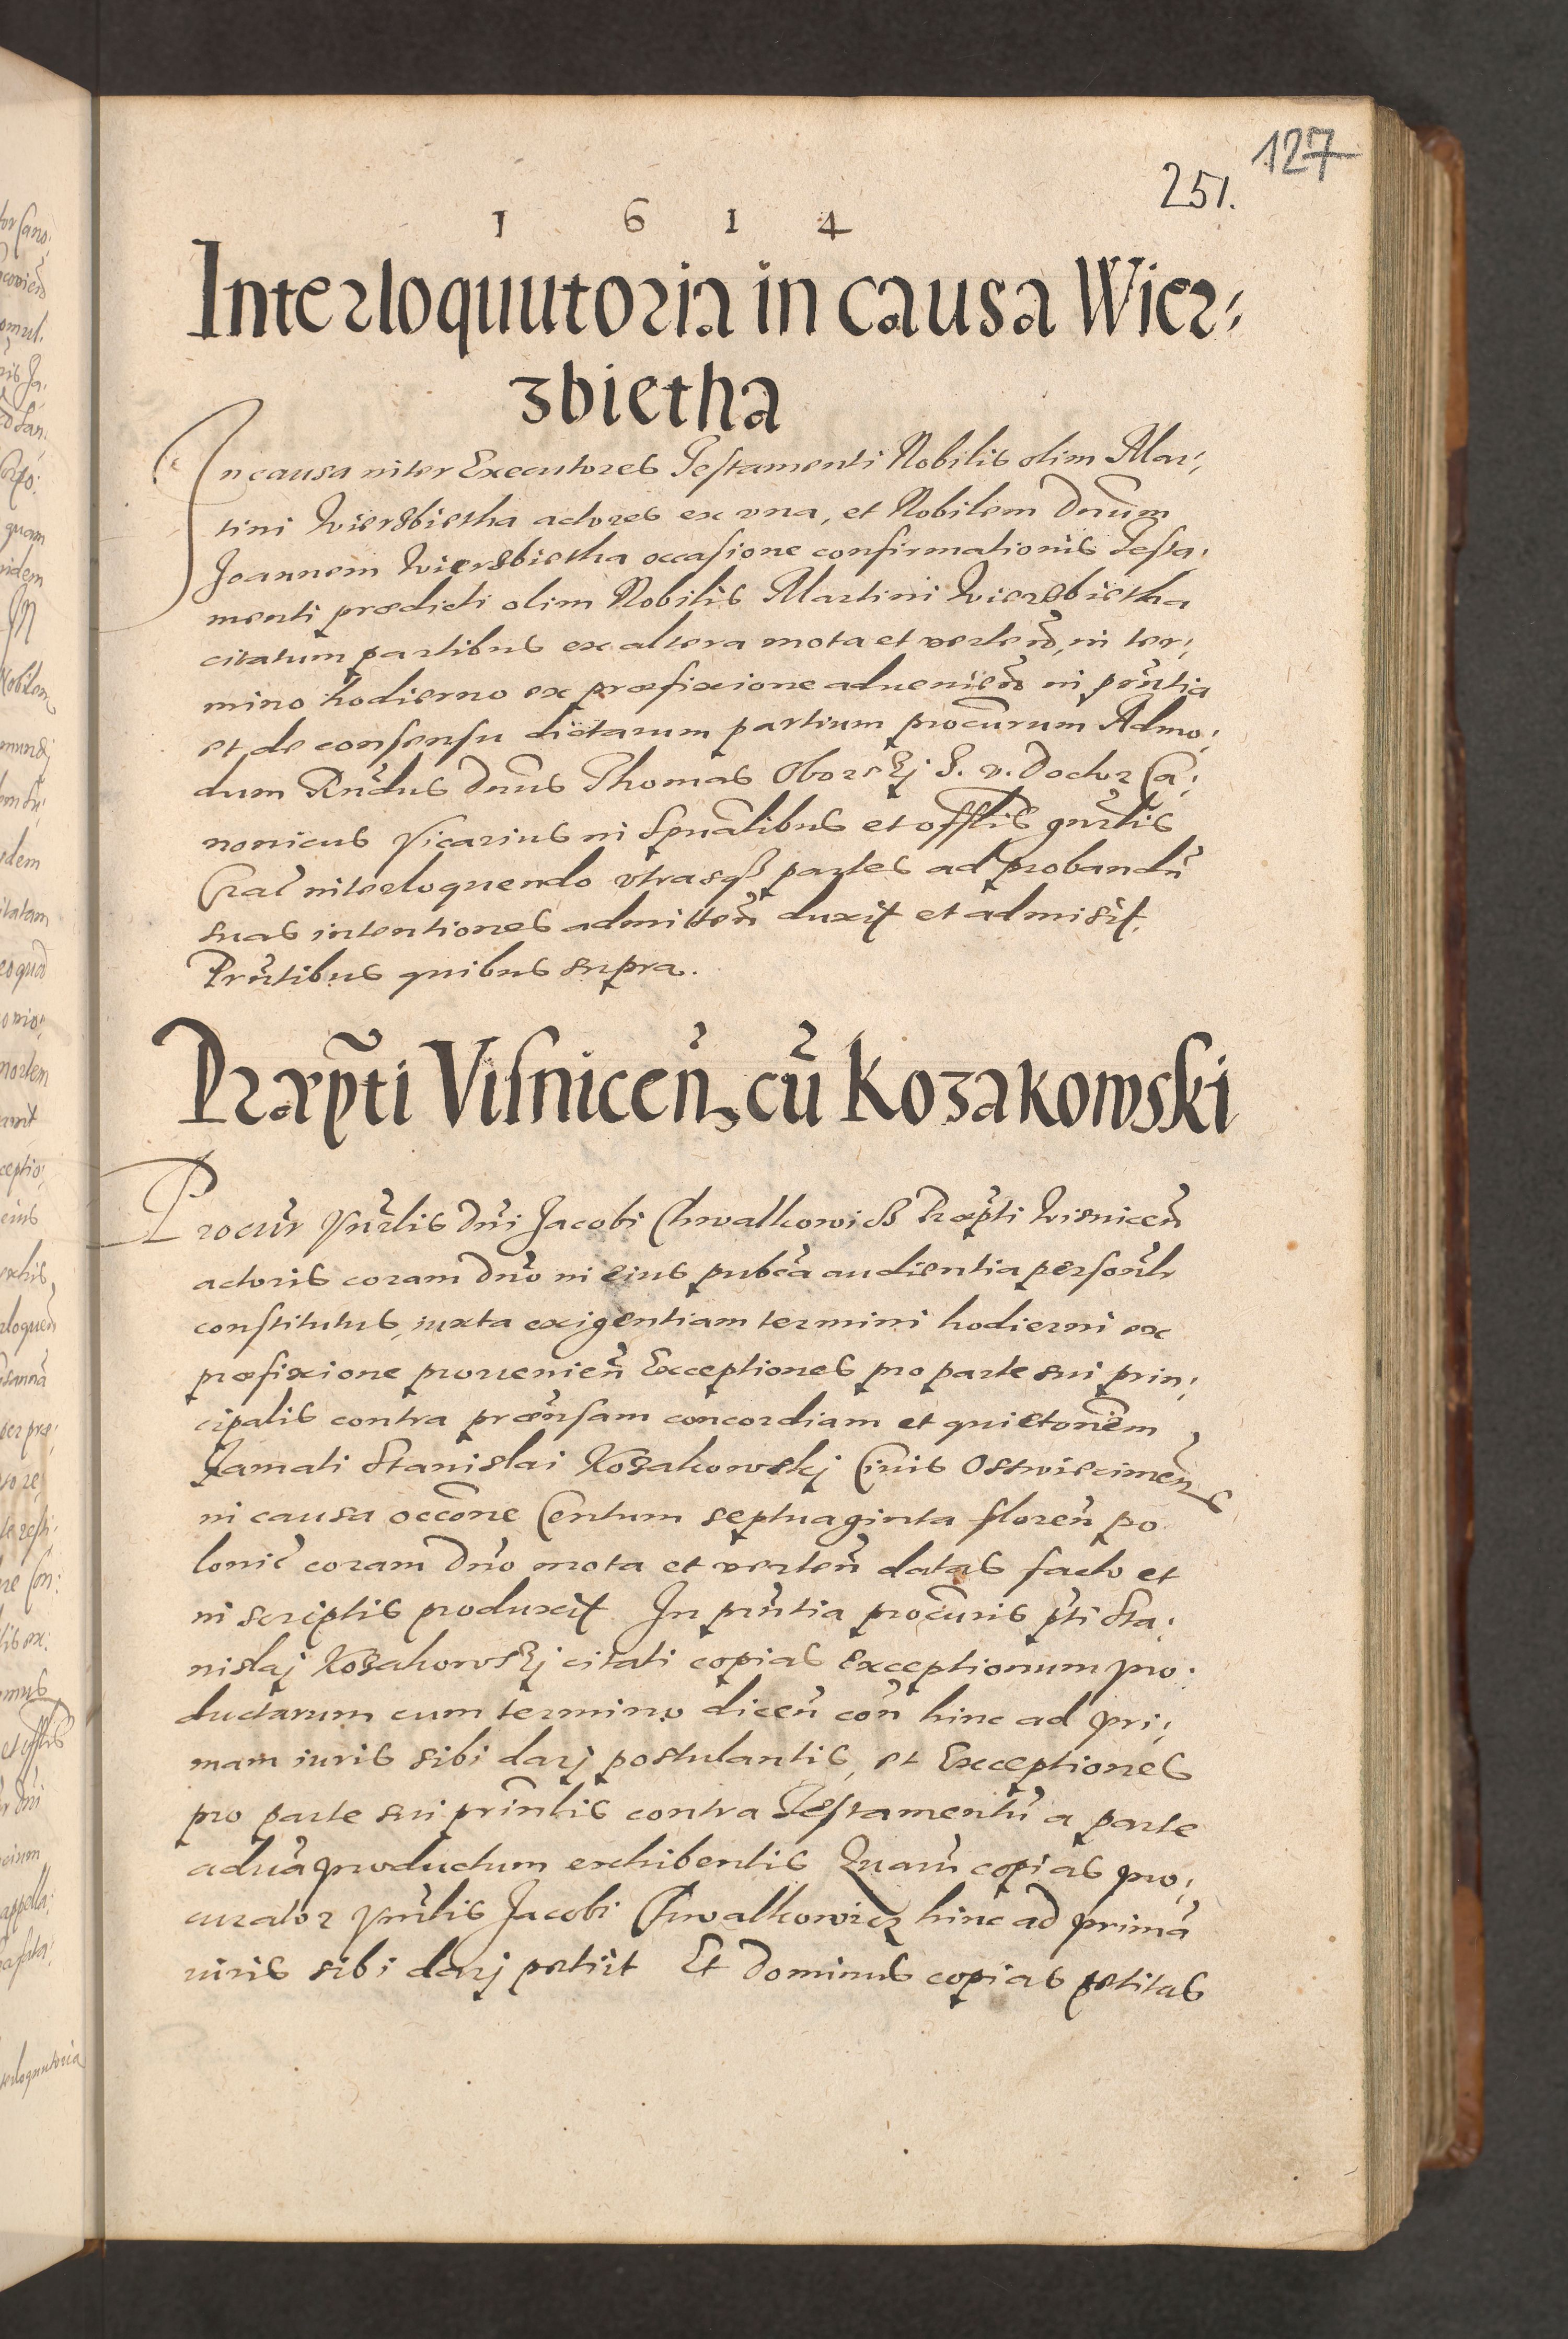 127
251.
1 6 1 4
Interloquutoria in causa Wier-
zbietha
In causa inter Executores Testamenti Nobilis olim Mar-
tini Wierzbietha actores ex vna, et Nobilem Dnum
Joannem Wierzbietha occasione confirmationis Testa-
menti prædicti olim Nobilis Martini Wierzbietha
citatum partibus ex altera mota et verteñ, in ter-
mino hodierno ex præfixione adueniẽn in prñtia
et de consensu dictarum partium procũrum Admo-
dum Rñdus Dnus Thomas Oborskj S. v. Doctor Ca-
nonicus Vicarius in Spũalibus et offlis gñrlis
Crac̃ interloquendo vtrasq₃ partes ad probandũ
suas intentiones admitteñ duxit et admisit.
Prñtibus quibus supra.
Præpti Visniceñ cũ Kozakowski
Procũr Vñrlis Dñi Jacobi Chwalkowicz Præpti Wisniceñ
actoris coram Dño in eius pubca audientia personlr
constitutus, iuxta exigentiam termini hodierni ex
præfixione prouenieñ Exceptiones pro parte sui prin-
cipalis contra præñsam concordiam et quietoñem
Famati Stanislai Kozakowskj Ciuis Osswiecimeñs
in causa occõne Centum septuaginta floreñ po
lonic̃ coram Dño mota et verteñ datas facto et
in scriptis produxit In prñtia procũris pti Sta-
nislaj Kozakowskj citati copias exceptionum pro-
ductarum cum termino diceñ coñ hinc ad pri-
mam iuris sibi darj postulantis, et Exceptiones
pro parte sui prinlis contra Testamentũ a parte
aduã productum exhibentis Quarũ copias pro-
curator Vñrlis Jacobi Chwalkowicz hinc ad primã
iuris sibi darj petiit Et Dominus copias petitas